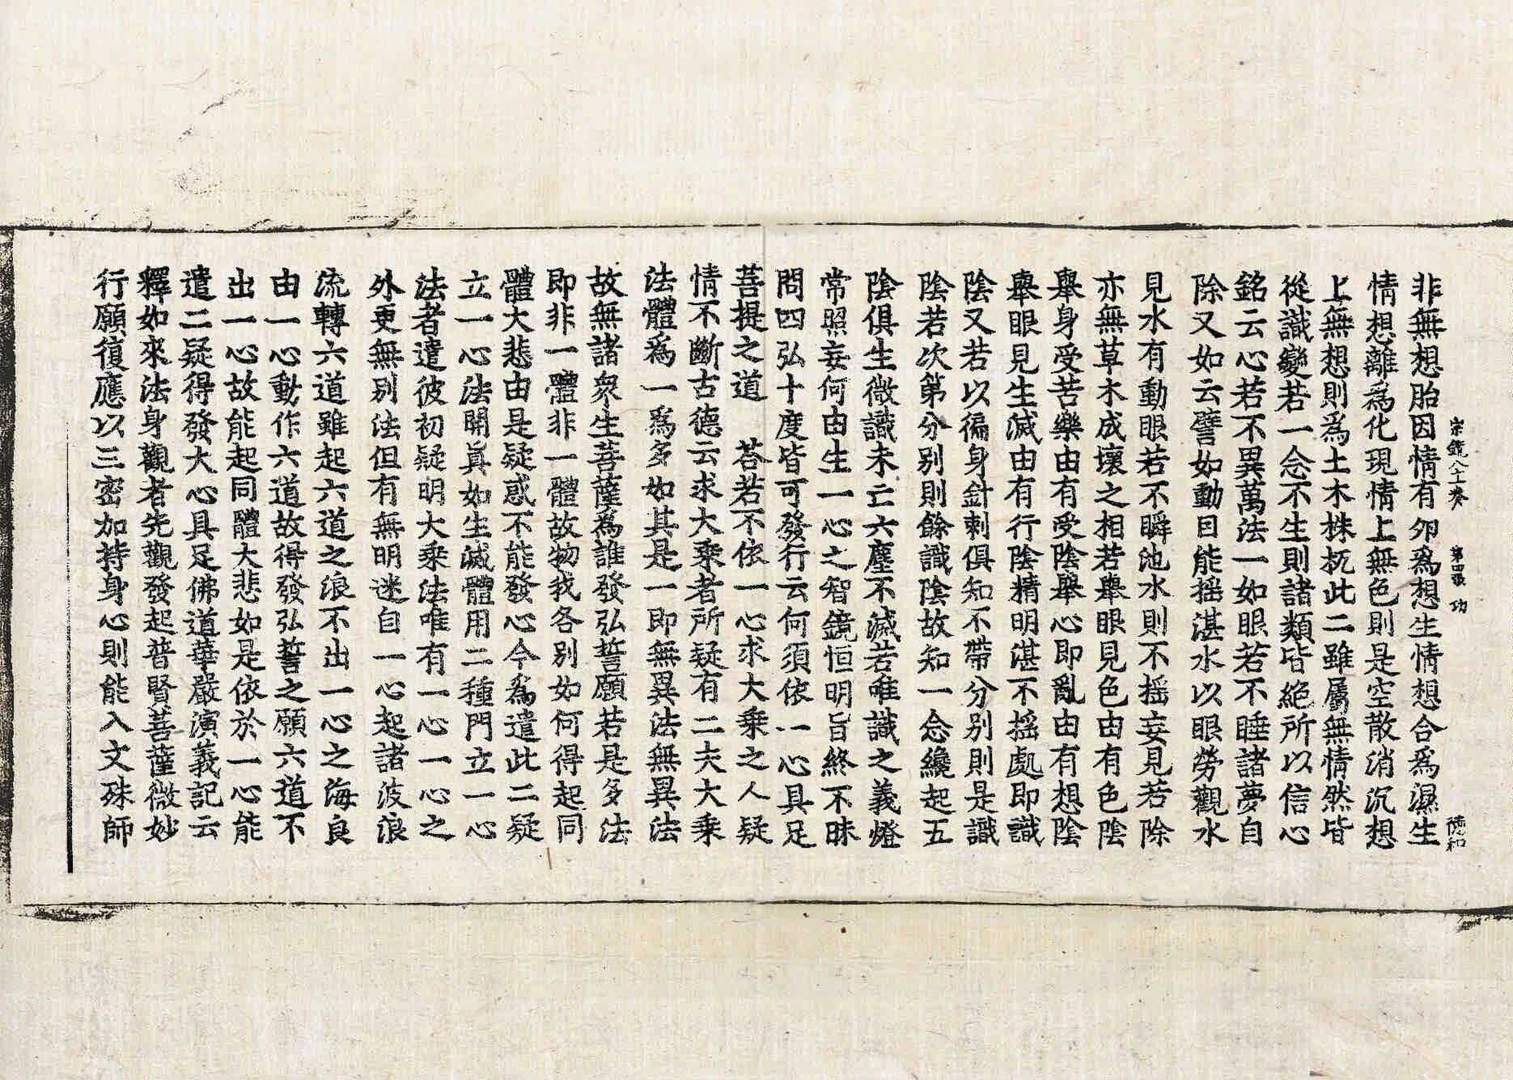 宗鏡八十卷 第四張 功
德和
非無想胎因情有卵爲想生情想合爲濕生
情想離爲化現情上無色則是空散消沉想
上無想則爲土木株杌此二雖屬無情然皆
從識變若一念不生則諸類皆絶所以信心
銘云心若不異萬法一如眼若不睡諸夢自
除又如云譬如動目能揺湛水以眼勞觀水
見水有動眼若不瞬池水則不揺妄見若除
亦無草木成壞之相若舉眼見色由有色陰
舉身受苦樂由有受陰舉心即亂由有想陰
舉眼見生滅由有行陰精明湛不揺處即識
陰又若以徧身針刺俱知不帶分别則是識
陰若次第分别則餘識陰故知一念纔起五
陰俱生微識未亡六塵不滅若唯識之義燈
常照妄何由生一心之智鏡恒明旨終不昧
問四弘十度皆可發行云何須依一心具足
菩提之道 荅若不依一心求大乗之人疑
情不斷古德云求大乗者所疑有二夫大乗
法體爲一爲多如其是一即無異法無異法
故無諸衆生菩薩爲誰發弘誓願若是多法
即非一體非一體故物我各别如何得起同
體大悲由是疑惑不能發心今爲遣此二疑
立一心法開眞如生滅體用二種門立一心
法者遣彼初疑明大乗法唯有一心一心之
外更無别法但有無明迷自一心起諸波浪
流轉六道雖起六道之浪不出一心之海良
由一心動作六道故得發弘誓之願六道不
出一心故能起同體大悲如是依於一心能
遣二疑得發大心具足佛道華嚴演義記云
釋如來法身觀者先觀發起普賢菩薩微妙
行願復應以三密加持身心則能入文殊師